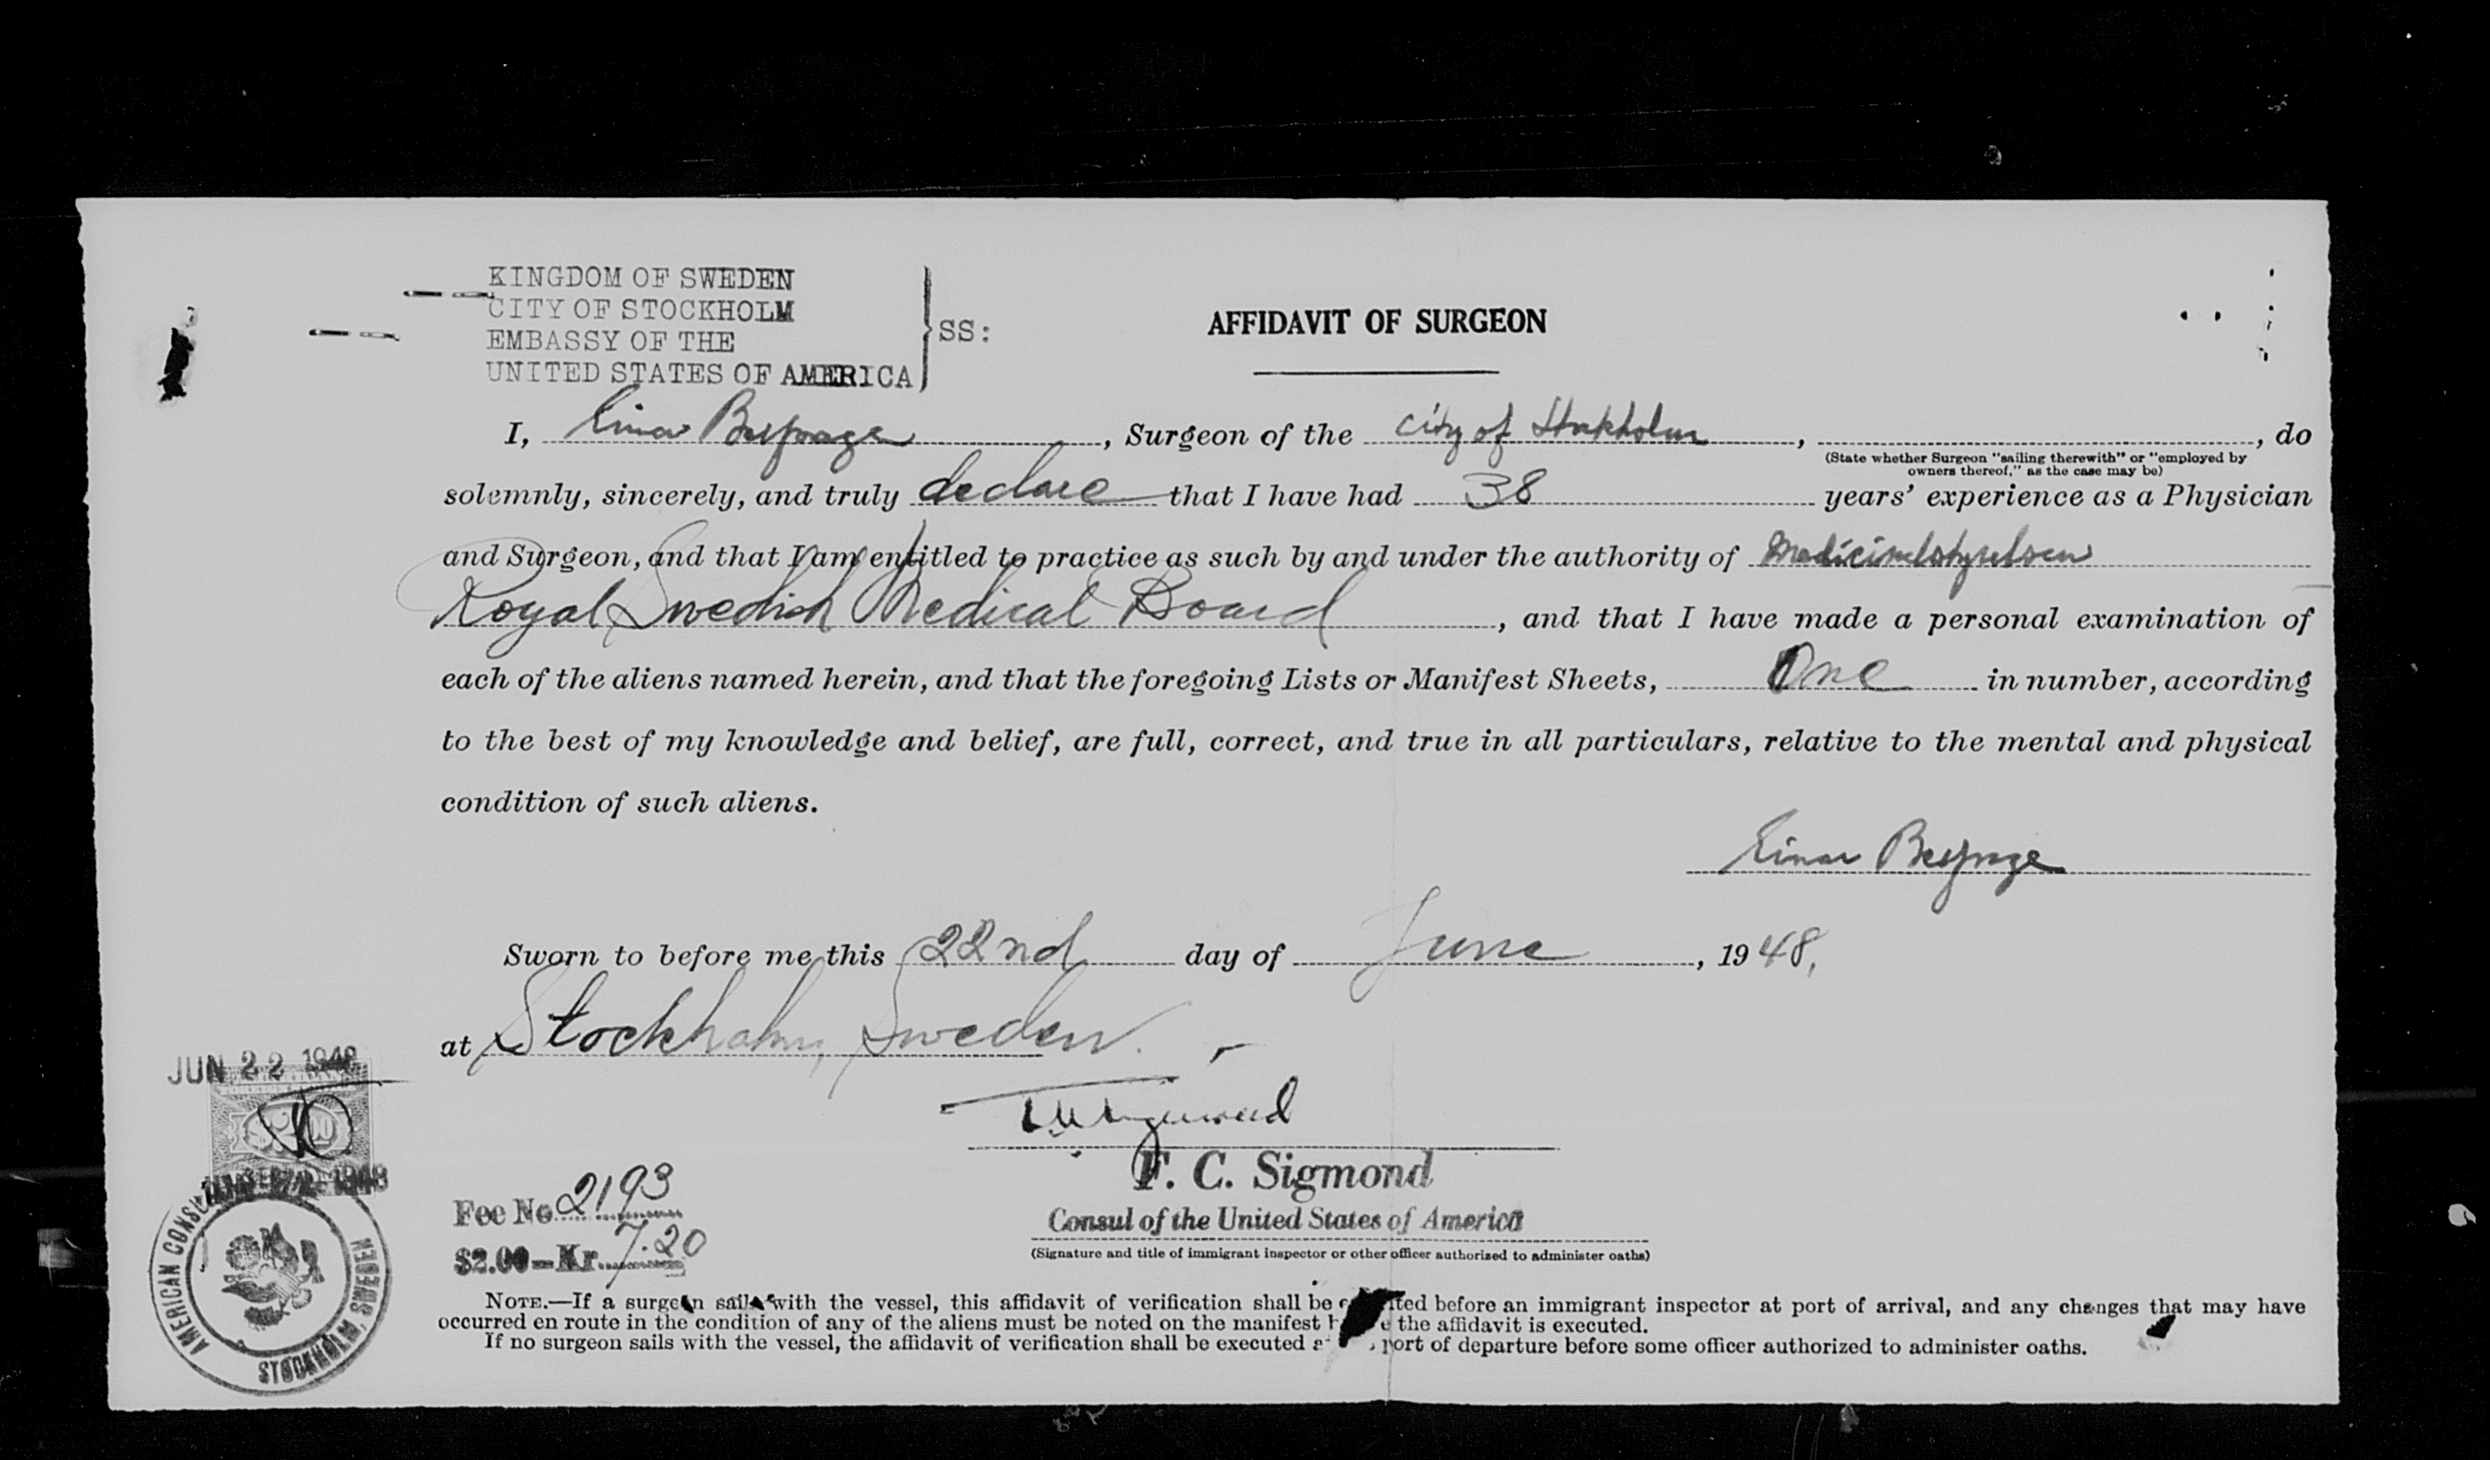 KINGDOM OF SWEDEN
CITY OF STOCKHOLM
EMBASSY OF THE
UNITED STATES OF AMERICA
SS:
AFFIDAVIT OF SURGEON
I, Einar, Surgeon of the City of Stockholm, , do
(State whether Surgeon "sailing therewith" or "employed by
owners thereof," as the case may be)
solemnly, sincerely, and truly declare that I have had 38 years' experience as a Physician
and Surgeon, and that I am entitled to practice as such by and under the authority of Medicinalstyrelsen
Royal Swedish Medical Board, and that I have made a personal examination of
each of the aliens named herein, and that the foregoing Lists or Manifest Sheets, One in number, according
to the best of my knowledge and belief, are full, correct, and true in all particulars, relative to the mental and physical
condition of such aliens.
Einar
Sworn to before me this 22nd day of June, 1948,
at Stockholm, Sweden.
JUN 22 1948
F. C. Sigmond
Consul of the United States of America
(Signature and title of immigrant inspector or other officer authorized to administer oaths)
Fee No. 2193
$2.00—Kr. 7.20
AMERICAN
STOCKHOLM, SWEDEN
NOTE.—If a surgeon sails with the vessel, this affidavit of verification shall be before an immigrant inspector at port of arrival, and any changes that may have
occurred en route in the condition of any of the aliens must be noted on the manifest the affidavit is executed.
If no surgeon sails with the vessel, the affidavit of verification shall be executed port of departure before some officer authorized to administer oaths.